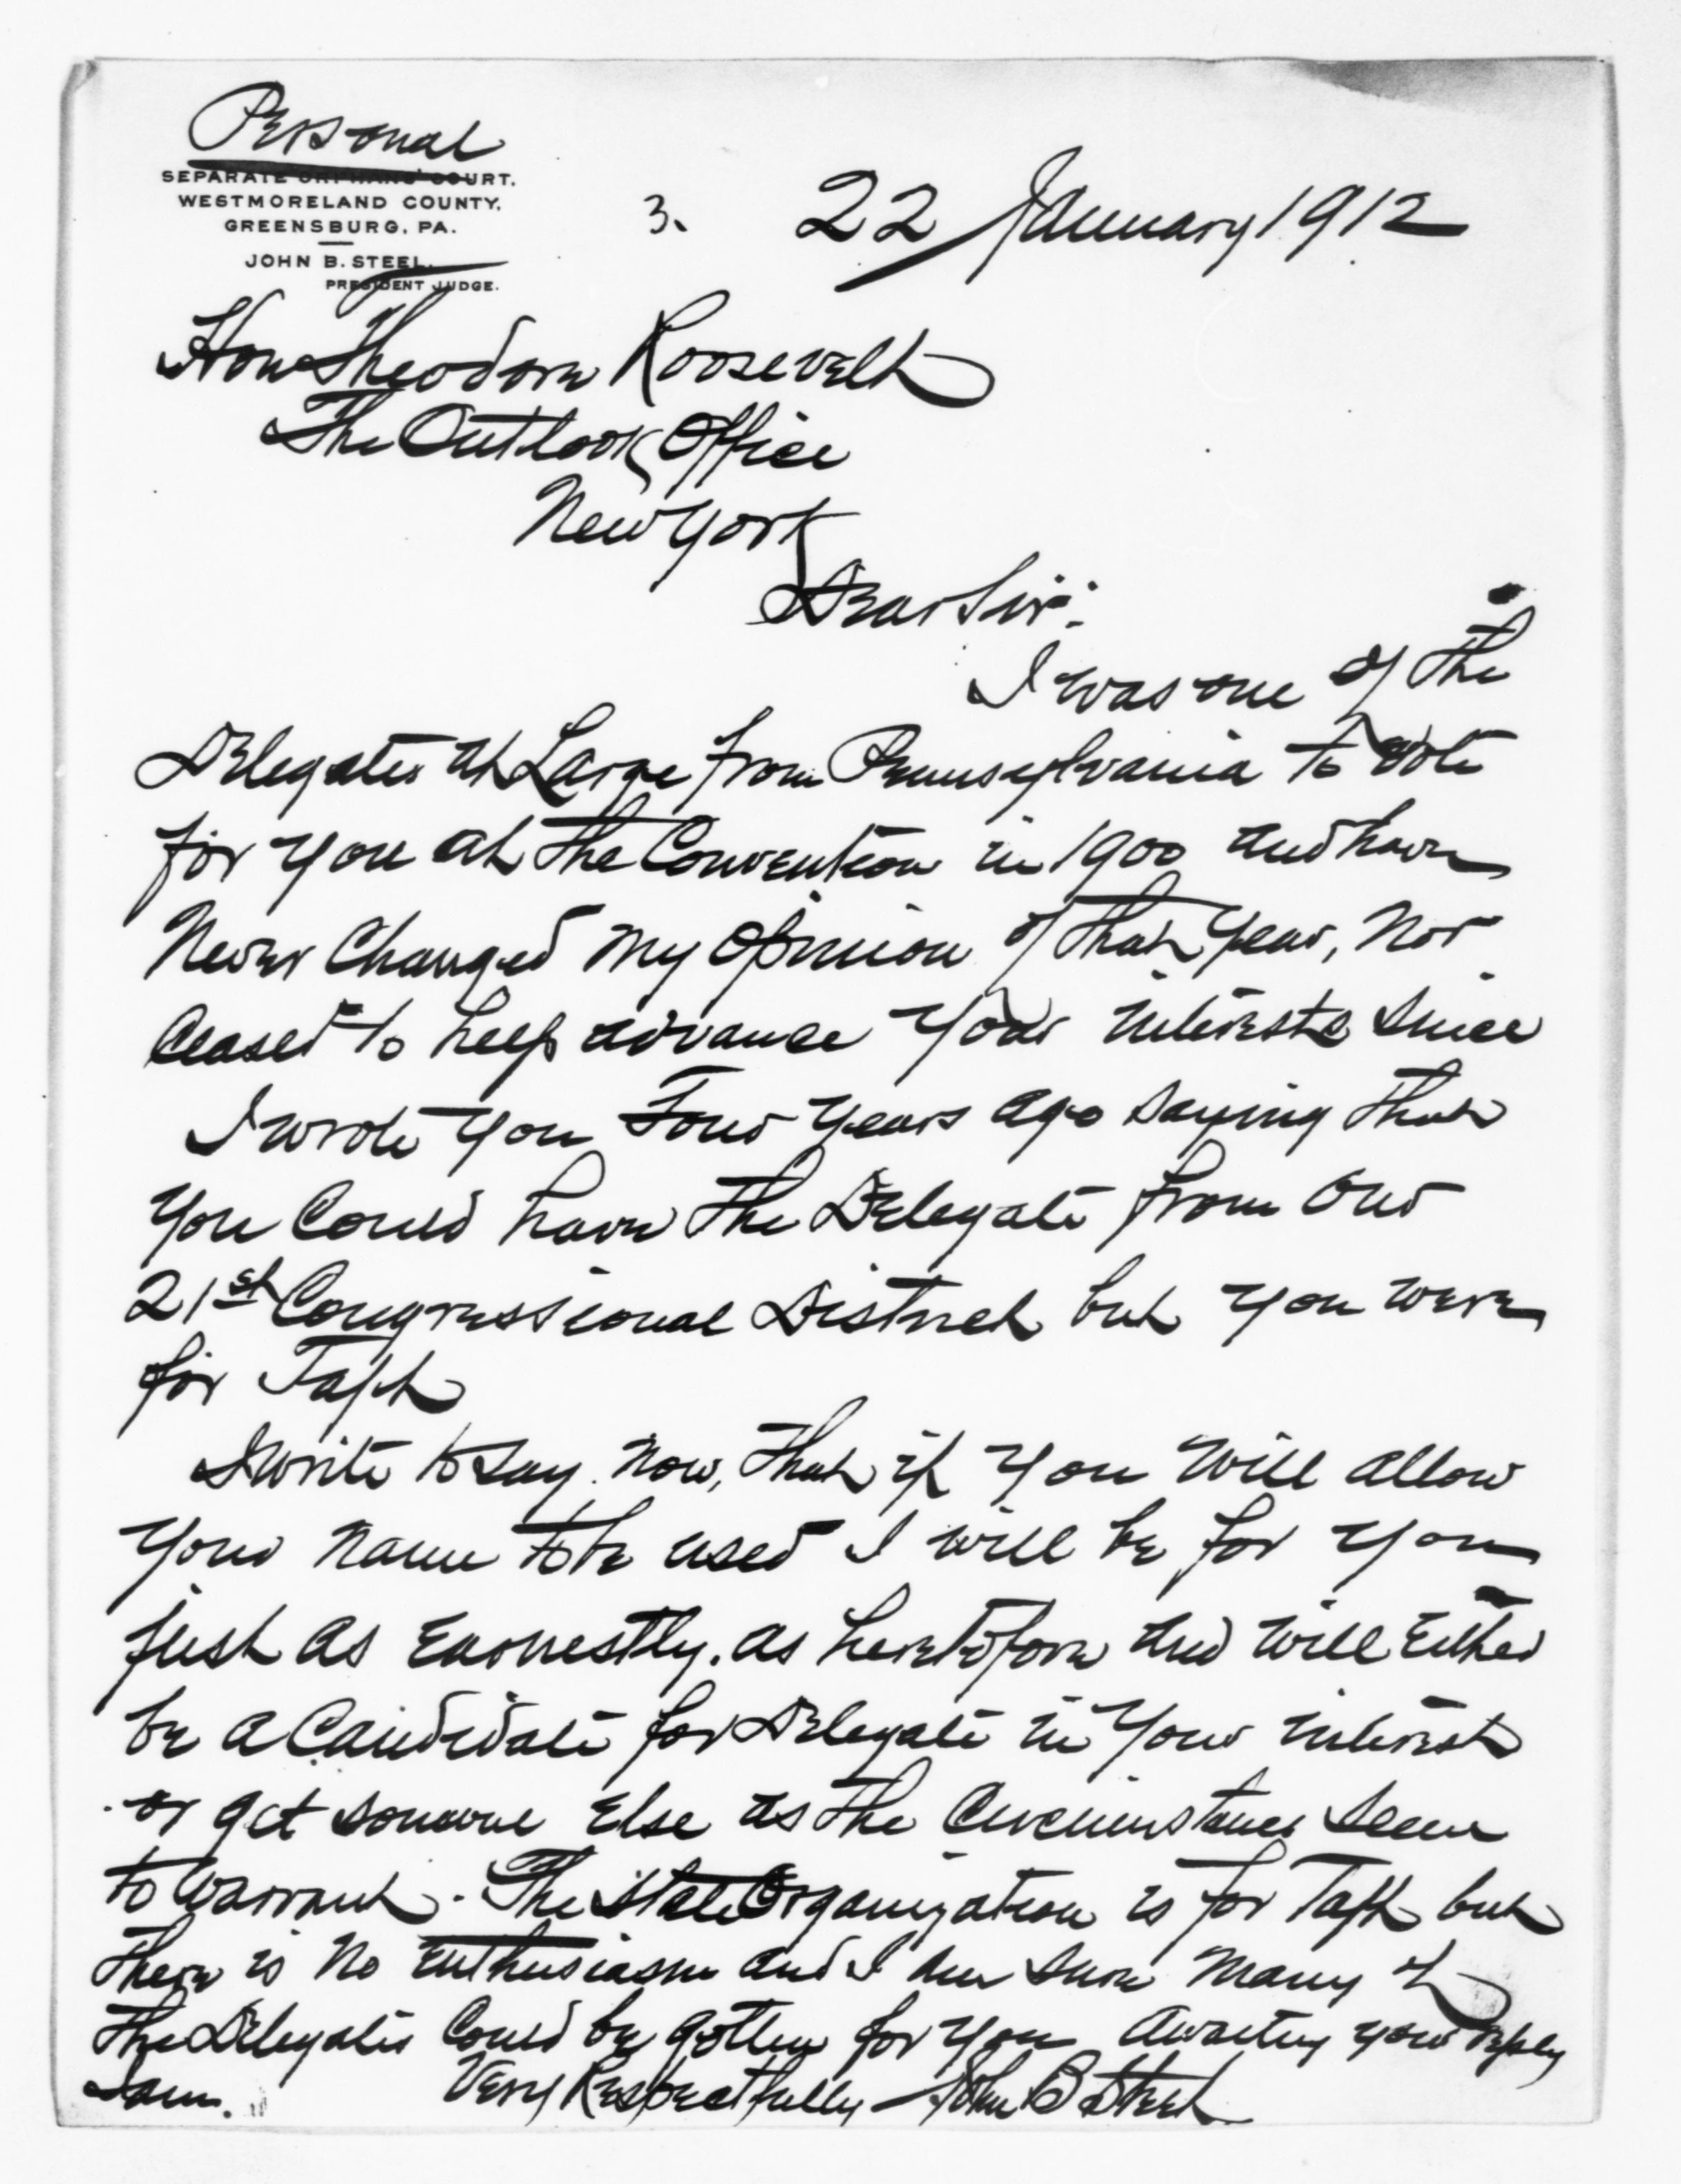 Personal
SEPARATE ORPHANS' COURT.
WESTMORELAND COUNTY,
GREENSBURG, PA.
JOHN B. STEEL,
PRESIDENT JUDGE.
3. 22 January 1912
Hon Theodore Roosevelt
The Outlook Office
New York
Dear Sir:
I was one of the
Delegates at Large from Pennsylvania to vote
for you at the Convention in 1900 and have
Never Changed my Opinion of that year, Nor
Ceased to help advance your interests since
I wrote you Four years ago saying that
you Could have the Delegate from Our
21st Congressional District but you were
for Taft
I write to say now, that if you will allow
your name to be used I will be for you
just as Earnestly. as heretofore and will Either
be a Candidate for Delegate in your interest
or get someone Else as the Circumstances seem
to warrant. The State Organization is for Taft but
there is no enthusiasm and I am sure many of
the Delegates Could be gotten for you Awaiting your reply
I am. Very Respectfully John B Steel